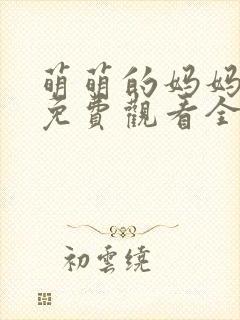 萌萌的妈妈
免費觀看全
初雲繞